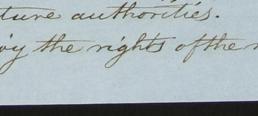 ture authorities.
oy the rights of the